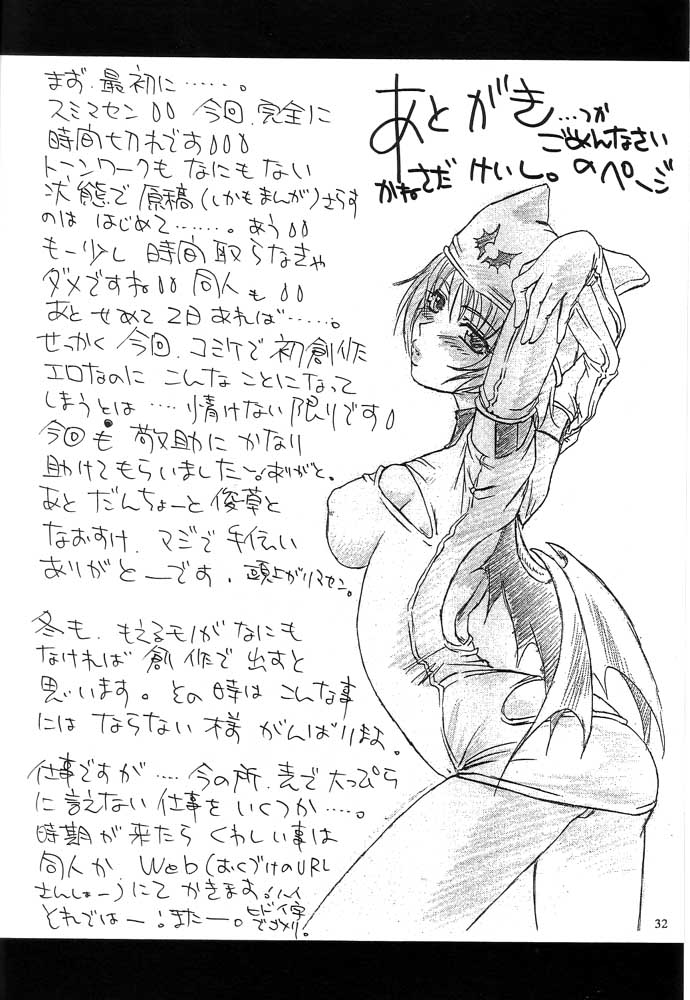 あとがき…つか
ごめんなさい
のページ
かねさだ けいし。
まず、最初に……。
スミマセン 今回、完全に
時間切れです
トーンワークもなにもない
状態で原稿(しかもまんが)さらす
のは はじめて……。あう
もー少し 時間取らなきゃ
ダメですね 同人も
あと せめて 2日あれば……。
せっかく 今回、コミケで初創作
エロなのに こんなことになって
しまうとは…. 情けない限りです
今回も 敬助にかなり
助けてもらいました〜。ありがと。
あと だんちょーと 俊草と
なおすけ、マジで手伝い
ありがとーです、頭上がりマセン。
冬も、もえるモノがなにも
なければ 創作で出すと
思います。その時は こんな事
には ならない様 がんばりまふ。
仕事ですが…. 今の所、表で大っぴら
に言えない仕事をいくつか….。
時期が来たら くわしい事は
同人か Web(おくづけのURL
さんしょー)にて かきます!ハイ
それではー!またー。ヒドイ字
でゴメソ!
32